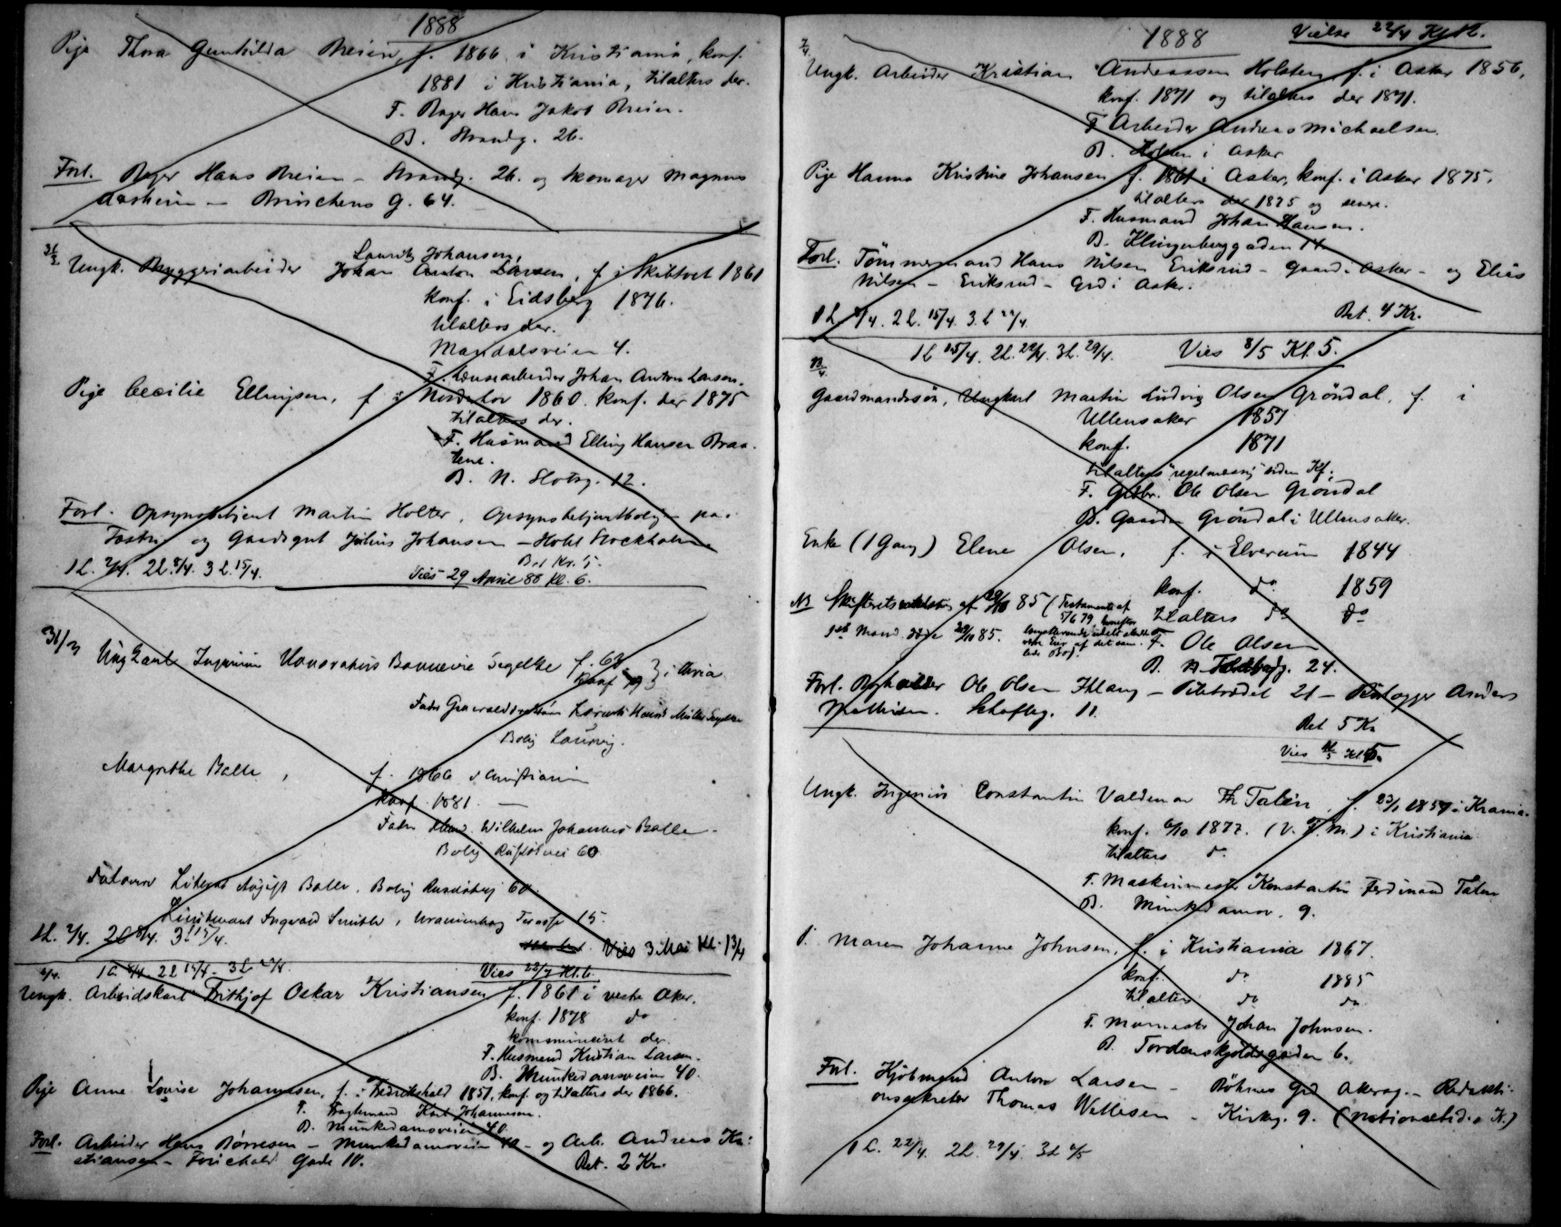 1888
Pige Thora Gunhilda Breien, f. 1866 i Kristiania, konf.
1881 i Kristiania, tilalters der.
F. Bager Hans Jakob Breien.
B. Strandg. 26.
Forl. Bager Hans Breien - Strandg. 26. og Skomager Magnus
Aasheim - Brinchens G. 64.
31/3
Laurits Johansen,
Ungk. Bryggeriarbeider Johan Anton Larsen, f. i Skibtvet 1861
konf. i Eidsberg 1876.
tilalters der.
Maridalsveien 4.
F. Johan Anton Larsen.
Pige Cecilie Ellingsen, f. i Nordrehov 1860. konf. der 1875
tilalters der.
F. Husmand Elling Hansen Braa-
tene.
B. N. Slotsg. 12.
Forl. Opsynsbetjent Martin Holter, Opsynsbetjentbolig paa
og Gaardsgut Julius Johansen - Hotel Stockholm
1 L. 2/4. 2 L. 8/4. 3 L. 15/4.
Bet Kr. 5.
Vies 29 April 88 Kl. 6.
31/3
Ungkarl Ingeniør Honoratus Bonnevie Segelke f. 62
Konf 79
Bolig Laurvig.
Margrethe Balle, f. 1866 i Christiania
Konf. 1881. —
Fader Wilhelm Johannes Balle.
Bolig 60
Forlovere August Balle. Bolig 60.
Lieutenant Ingvald Smith, Uranienborg Terasse 15
1 L. 2/4. 2 L 8/4. 3 L 15/4.
Vies 3 Mai Kl.
1 L. 8/4 2 L 15/4 - 3 L 22/4.
Vies 22/4 Kl. 6.
Ungk. Arbeidskarl Frithjof Oskar Kristiansen f. 1861 i vestre Aker.
konf. 1878 do
kommuniceret der.
F. Husmand Kristian Larsen.
B. Munkedamsveien 40.
Pige Anne Lovise Johannesen, f. i Fredrikshald 1851, konf. og tilalters der 1866.
F. Karl Johannesen.
B. Munkedamsveien 40
Forl. Arbeider Hans Børresen - Munkedamsveien 40 - og Arb. Andreas Kri-
stiansen - Gade 10.
Bet. 2 Kr.
1888
Vielse 22/4 Kl.
7/4
Ungk. Arbeider Kristian Andreassen Holsten, f. i Asker 1856,
konf. 1871 og tilalters der 1871.
F Arbeider Andreas Michaelsen.
B. Holsten i Asker
Pige Hanna Kristine Johansen f. 1861 i Asker, konf. i Asker 1875.
tilalters der 1875 og senere.
F. Husmand Johan Hansen.
B. Klingenberggaden 14
Forl. Tømmermand Hans Nilsen Eriksrud - Gaard i Asker - og Elias
Nilsen - Eriksrud - Grd i Asker.
1 L. 8/4. 2 L. 15/4. 3 L 22/4.
Bet. 4 Kr.
1 L 15/4. 2 L. 22/4. 3 L. 29/4.
Vies 8/5 Kl. 5.
13/4
Gaardmandssøn, Ungkarl Martin Ludvig Olsen Grøndal, f. i
Ullensaker 1851
konf. 1871
tilalters "regelmæssig" siden Kf.
F. Grdbr. Ole Olsen Grøndal
B. Gaarden Grøndal i Ullensaker.
Enke (1 Gang) Elene Olsen, f. i Elverum 1844
konf. do 1859
tilalters do do
NB Skifteretsattest af 29/10 85 (Testamente af
5/6 79, hvorefter
1ste Mand døde 29/10 85.
F. Ole Olsen
B. 24.
Forl. Ole Olsen - Pilestrædet 21 - Anders
Mathisen. Schafteg. 11.
Bet 5 Kr
Vies Kl 5.
Ungk. Ingeniør Constantin Valdemar Th Talén, f. 23/1 1859 i Krania.
konf. 1877. (V. F. M.) i Kristiania
tilalters do.
F. Maskinmester Konstantin Ferdinand Talen
B. Munkedamsv. 9.
P. Maren Johanne Johnsen, f. i Kristiania 1867.
konf. do 1885
tilalters do do
F. Murmester Johan Johnsen.
B. Tordenskjoldsgaden 6.
Forl. Kjøbmand Anton Larsen - Bøhns Grd Akersg. - Redakti-
onssekretær Thomas Wettesen - Kirkeg. 9. (Nationaltid. i K.)
1 L. 22/4. 2 L. 29/4. 3 L 6/5